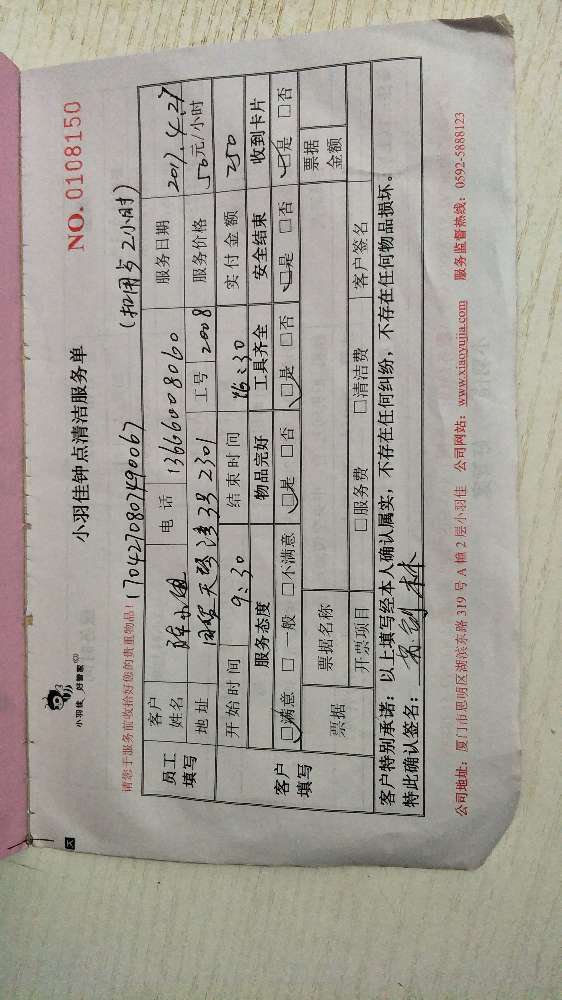 小羽佳 好管家
小羽佳钟点清洁服务单
NO. 0108150
请您于服务前收拾好您的贵重物品! 1704270807490067 (扣用与2小时)
员工填写 客户姓名 陈小姐 电话 13666008060 服务日期 2017.4.27
地址 天 湾 33 2301 工号 2008 服务价格 50元/小时
客户填写 开始时间 9:30 结束时间 16:30 实付金额 250
服务态度 物品完好 工具齐全 安全结束 收到卡片
☑满意 □一般 □不满意 ☑是 □否 ☑是 □否 ☑是 □否 ☑是 □否
票据 票据名称 票据金额
开票项目 □服务费 □清洁费 客户签名
客户特别承诺:以上填写经本人确认属实,不存在任何纠纷,不存在任何物品损坏。
特此确认签名:
公司地址:厦门市思明区湖滨东路 319 号 A 幢 2 层小羽佳 公司网站:www.xiaoyujia.com 服务监督热线:0592-5888123